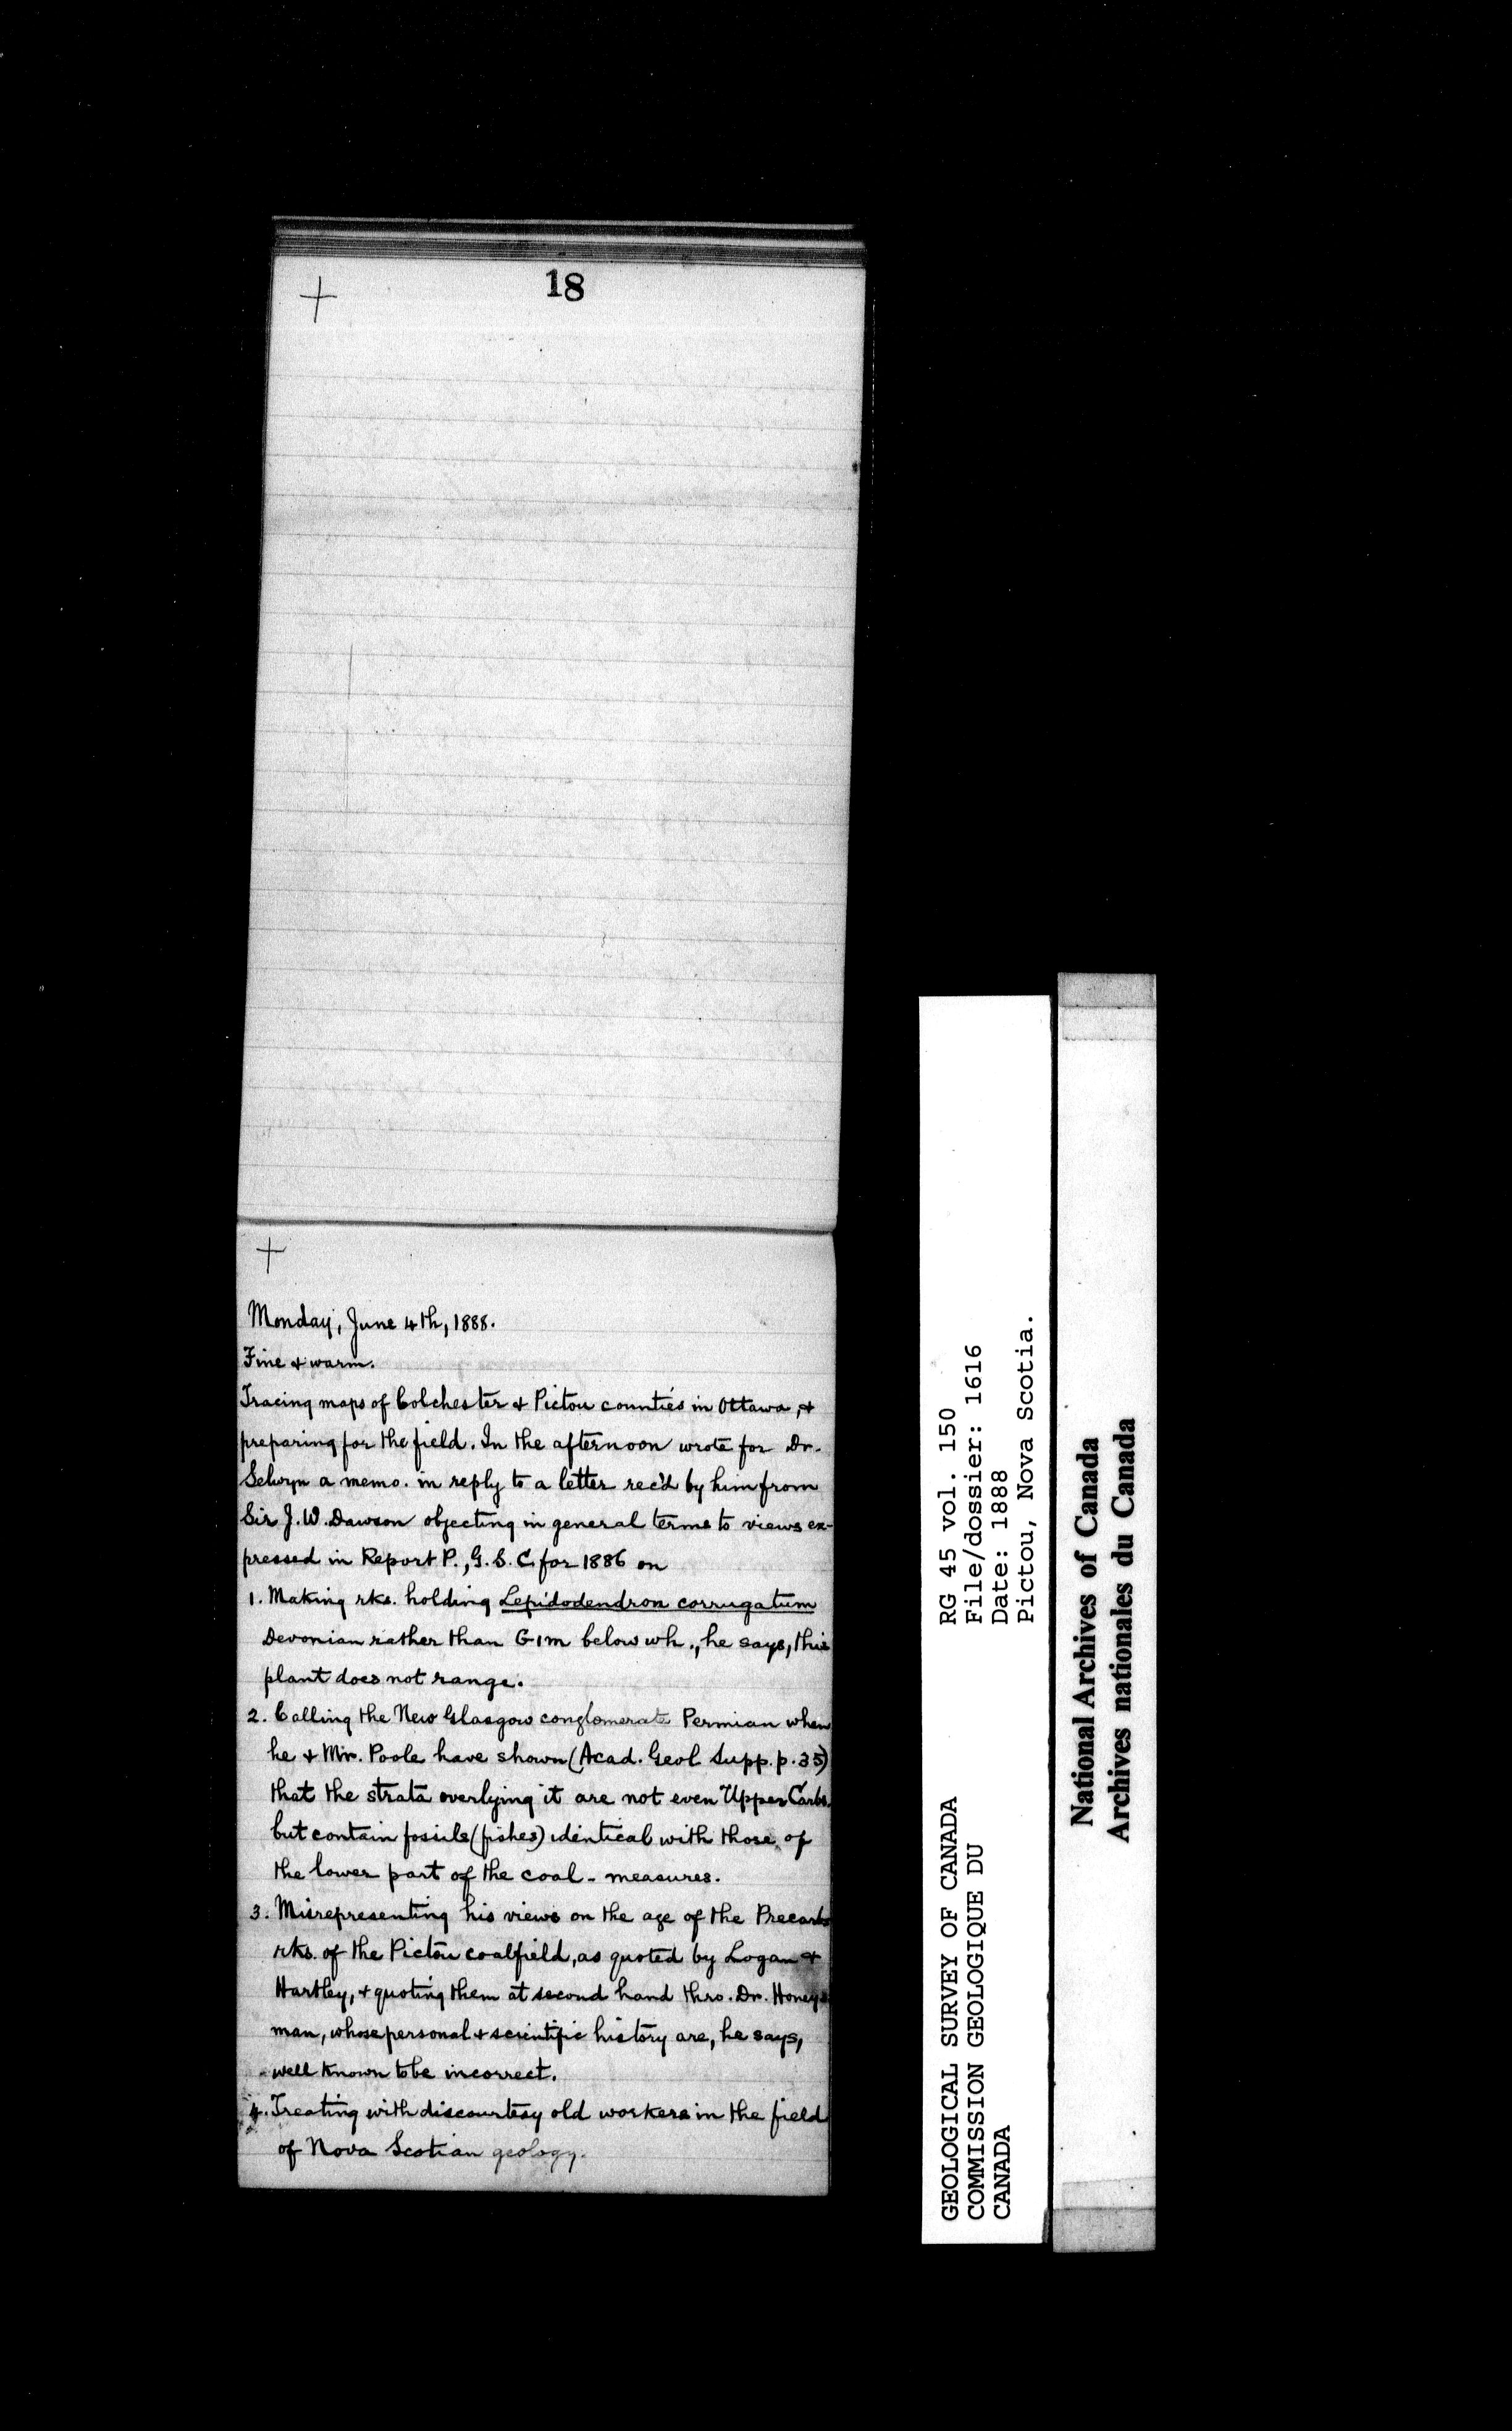 18
+
+
Monday, June 4th, 1888.
Fine & warm.
Tracing maps of Colchester & Pictou counties in Ottawa, &
preparing for the field. In the afternoon wrote for Dr.
Selwyn a memo. in reply to a letter rec'd by him from
Sir J. W. Dawson objecting in general terms to views ex-
pressed in Report P., G. S. C. for 1886 on
1. Making rks. holding Lepidodendron corrugatum
Devonian rather than G1m below wh., he says, this
plant does not range.
2. Calling the New Glasgow conglomerate Permian when
he & Mr. Poole have shown (Acad. Geol Supp. p. 35)
that the strata overlying it are not even Upper Carbs.
but contain fossils (fishes) identical with those of
the lower part of the coal-measures.
3. Misrepresenting his views on the age of the Precarb
rks. of the Pictou coalfield, as quoted by Logan &
Hartley, & quoting them at second hand thro. Dr. Honey-
man, whose personal & scientific history are, he says,
well known to be incorrect.
4. Treating with discourtesy old workers in the field
of Nova Scotian geology.
GEOLOGICAL SURVEY OF CANADA
COMMISSION GEOLOGIQUE DU
CANADA
RG 45 vol. 150
File/dossier: 1616
Date: 1888
Pictou, Nova Scotia.
National Archives of Canada
Archives nationales du Canada